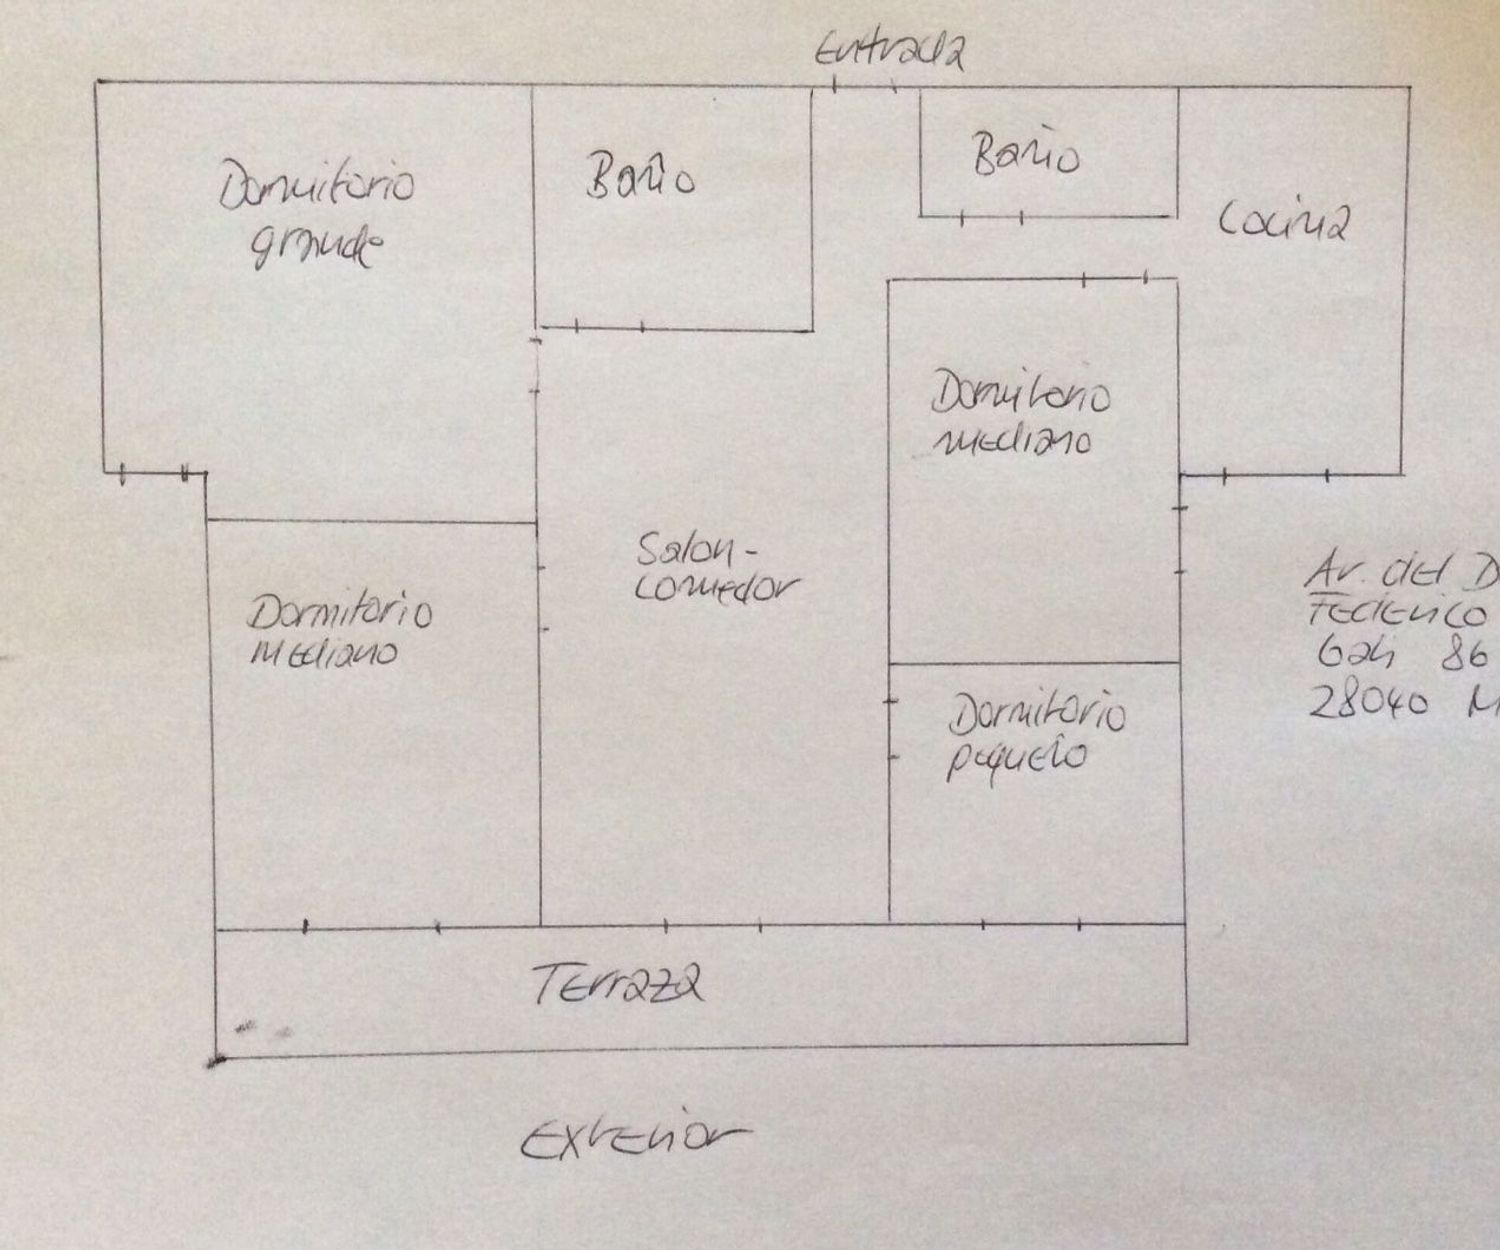 Entrada
Dormitorio
grande
Baño
Baño
Cocina
Dormitorio
mediano
Salon-
comedor
Dormitorio
mediano
Dormitorio
pequeño
Av. del D
Federico
86
28040 M
Terraza
Exterior